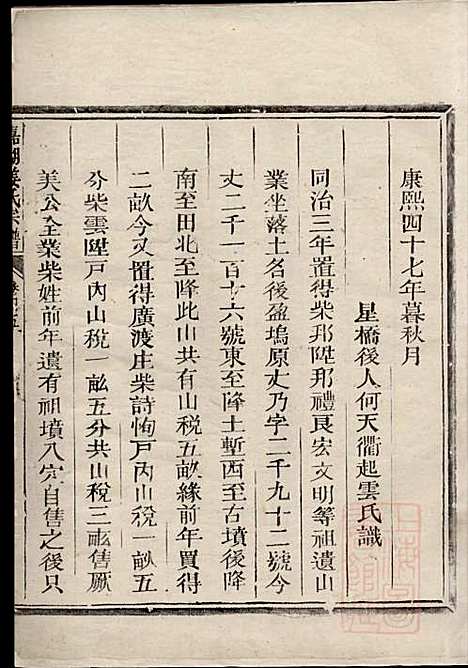 康熙四十七年暮秋月
星橋後人何天衢起雲氏識
同治三年置得柴邦陞邦禮良宏文明等祖遺山
業坐落土名後盈塢原丈乃字二千九十二號今
丈二千一百十六號東至降土塹西至古墳後降
南至田北至降此山共有山稅五畝緣前年買得
二畝今又置得廣渡庄柴詩恂戶內山稅一畝五
分柴雲陞戶內山稅一畝五分共山稅三畝售厥
美公全業柴姓前年遺有祖墳八穴自售之後只
嘉湖姜氏宗譜